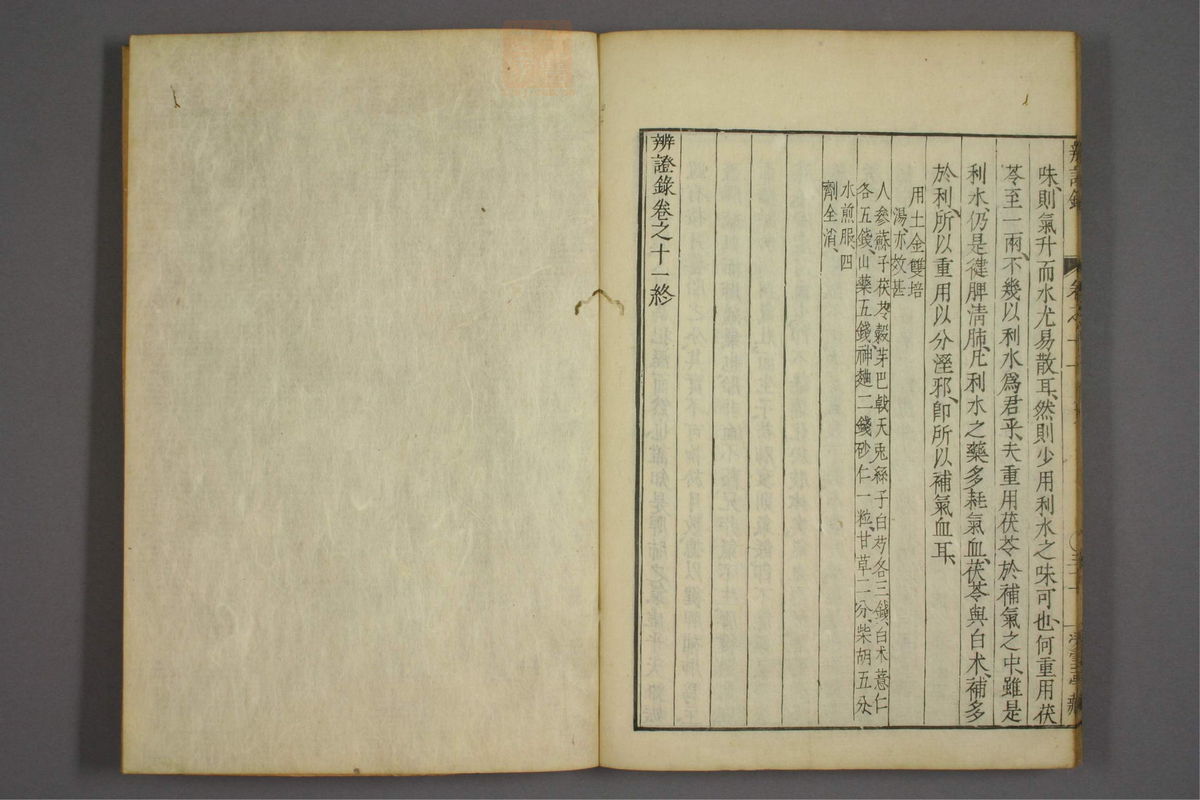 味、則氣升而水尤易散耳、然則少用利水之味可也、何重用茯
苓至一兩、不幾以利水爲君乎、夫重用茯苓於補氣之中、雖是
利水、仍是健脾淸肺、凡利水之藥多耗氣血、茯苓與白朮、補多
於利、所以重用以分溼邪、卽所以補氣血耳、
用土金雙培
湯、亦效甚
人參蘇子茯苓穀芽巴戟天兎絲子白芍各三錢、白朮薏仁
各五錢、山藥五錢、神麯二錢、砂仁一粒、甘草二分、柴胡五分、
水煎服、四
劑全消、
辨證錄卷之十一終